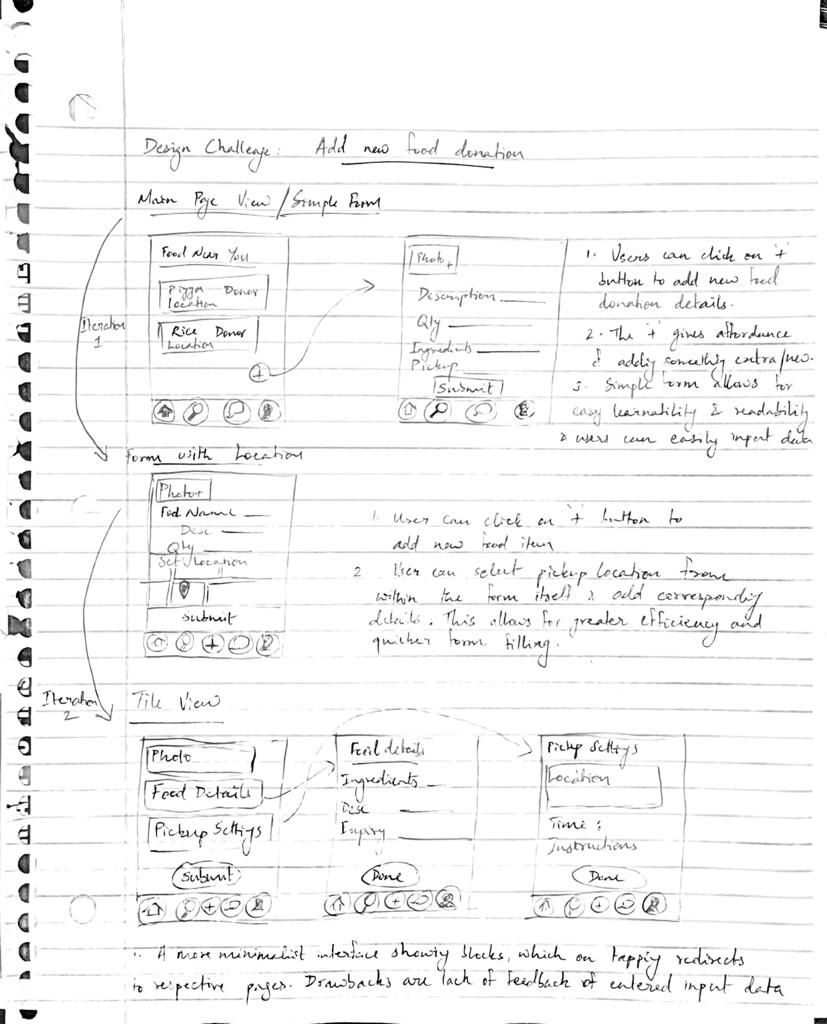 Design Challenge: Add new food donation
Main Page View / Simple Form
Iteration 1
Food Near You
Pizza Donor
Location
Rice Donor
Location
+
Photo +
Description
Qty
Ingredients
Pickup
Submit
1. Users can click on '+'
button to add new food
donation details.
2. The '+' gives affordance
of adding something extra/new.
3. Simple form allows for
easy learnability & readability
& users can easily input data
Form with Location
Photo+
Food Name
Desc
Qty
Set Location
Submit
1. User can click on '+' button to
add new food item
2. User can select pickup location from
within the form itself & add corresponding
details. This allows for greater efficiency and
quicker form filling.
Iteration 2
Tile View
Photo
Food Details
Pickup Settings
Submit
Food details
Ingredients
Disc
Expiry
Done
Pickup Settings
Location
Time :
Instructions
Done
1. A more minimalist interface showing blocks, which on tapping redirects
to respective pages. Drawbacks are lack of feedback of entered input data